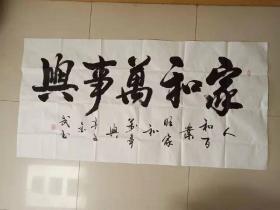 家和萬事興
人和百業旺家和萬事興